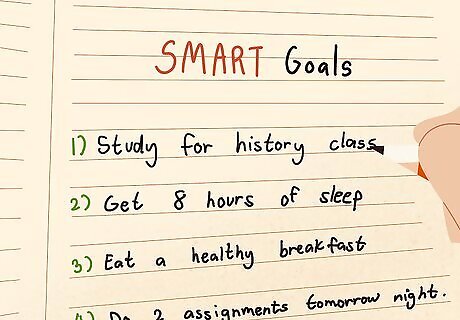 SMART Goals
1) Study for history class
2) Get 8 hours of sleep
3) Eat a healthy breakfast
4) Do 2 assignments tomorrow night.